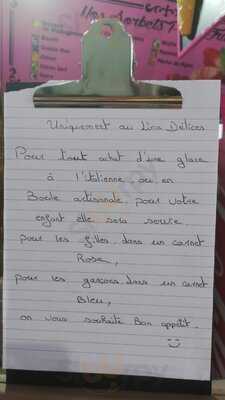 Nos Sorbets
Uniquement au Lina Délices
Pour tout achat d'une glace
à l'italienne ou en
Boule artisanale pour votre
enfant elle sera servie.
pour les filles dans un cornet
Rose,
pour les garçons dans un cornet
Bleu,
on vous souhaite Bon appétit.